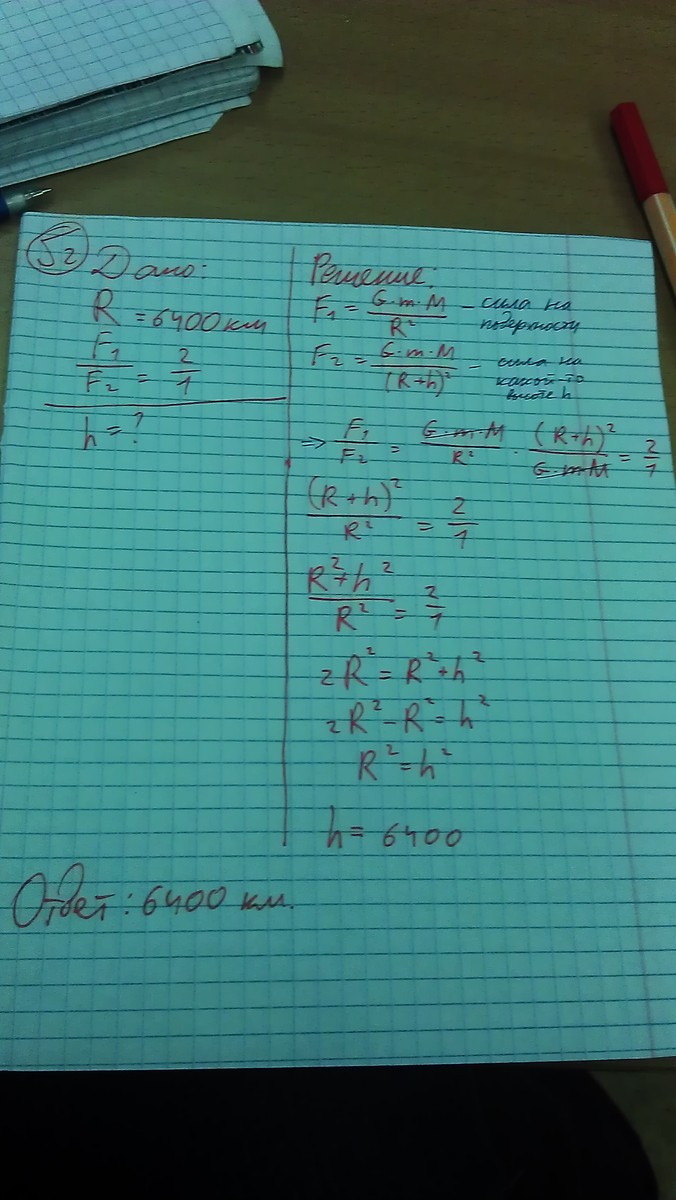 52 Дано:
R = 6400 км
F₁/F₂ = 2/1
h = ?
Решение:
F₁ = G·m·M/R² – сила на поверхности
F₂ = G·m·M/(R+h)² – сила на какой-то высоте h
=> F₁/F₂ = G·m·M/R² · (R+h)²/G·m·M = 2/1
(R+h)²/R² = 2/1
R²+h²/R² = 2/1
2R² = R²+h²
2R²–R² = h²
R² = h²
h = 6400
Ответ: 6400 км.